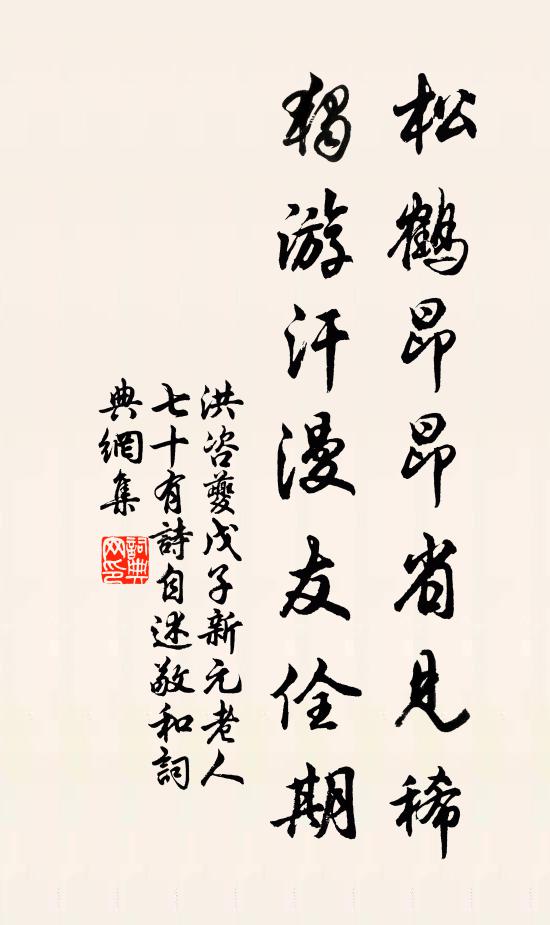 松鶴昂昂省見稀
獨游汗漫友佺期
洪咨夔戊子新元老人
七十有詩自述敬和詞
典網集
詞典網印